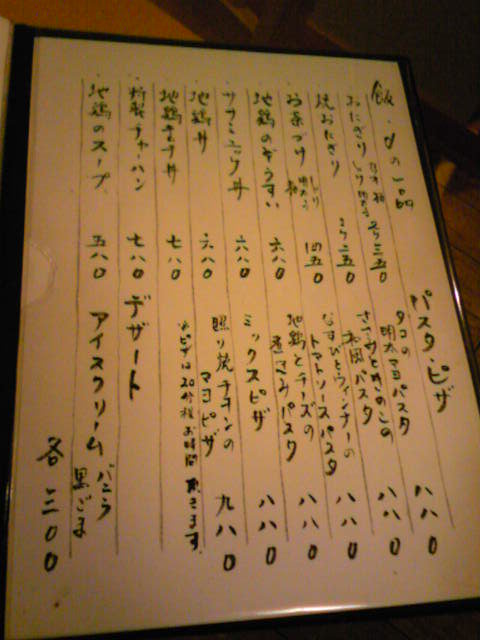 飯・other一品
おにぎり しゃけ 明太子 梅 二ケ 二五〇
焼おにぎり 二ケ 二五〇
お茶づけ しゃけ 明太子 梅 四五〇
地鶏のぞうすい 六八〇
ササミユッケ丼 六八〇
地鶏丼 六八〇
地鶏キムチ丼 七八〇
特製チャーハン 七八〇
地鶏のスープ 五八〇
パスタ・ピザ
タコの明太マヨパスタ 八八〇
さつまときのこの和風パスタ 八八〇
なすびとウィンナーのトマトソースパスタ 八八〇
地鶏とチーズの包みパスタ 八八〇
ミックスピザ 八八〇
照り焼チキンのマヨピザ 九八〇
※ピザは20分程お時間頂きます。
デザート
アイスクリーム バニラ 黒ごま 各三〇〇